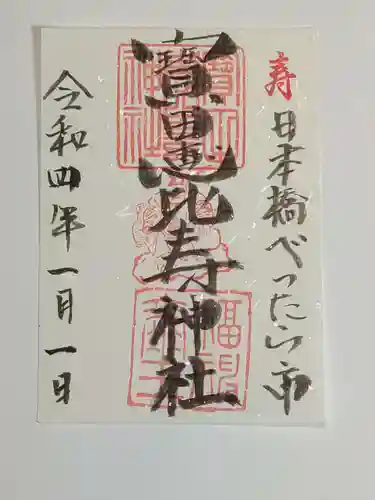 寿
日本橋べったら市
寳田恵比寿神社
令和四年一月一日